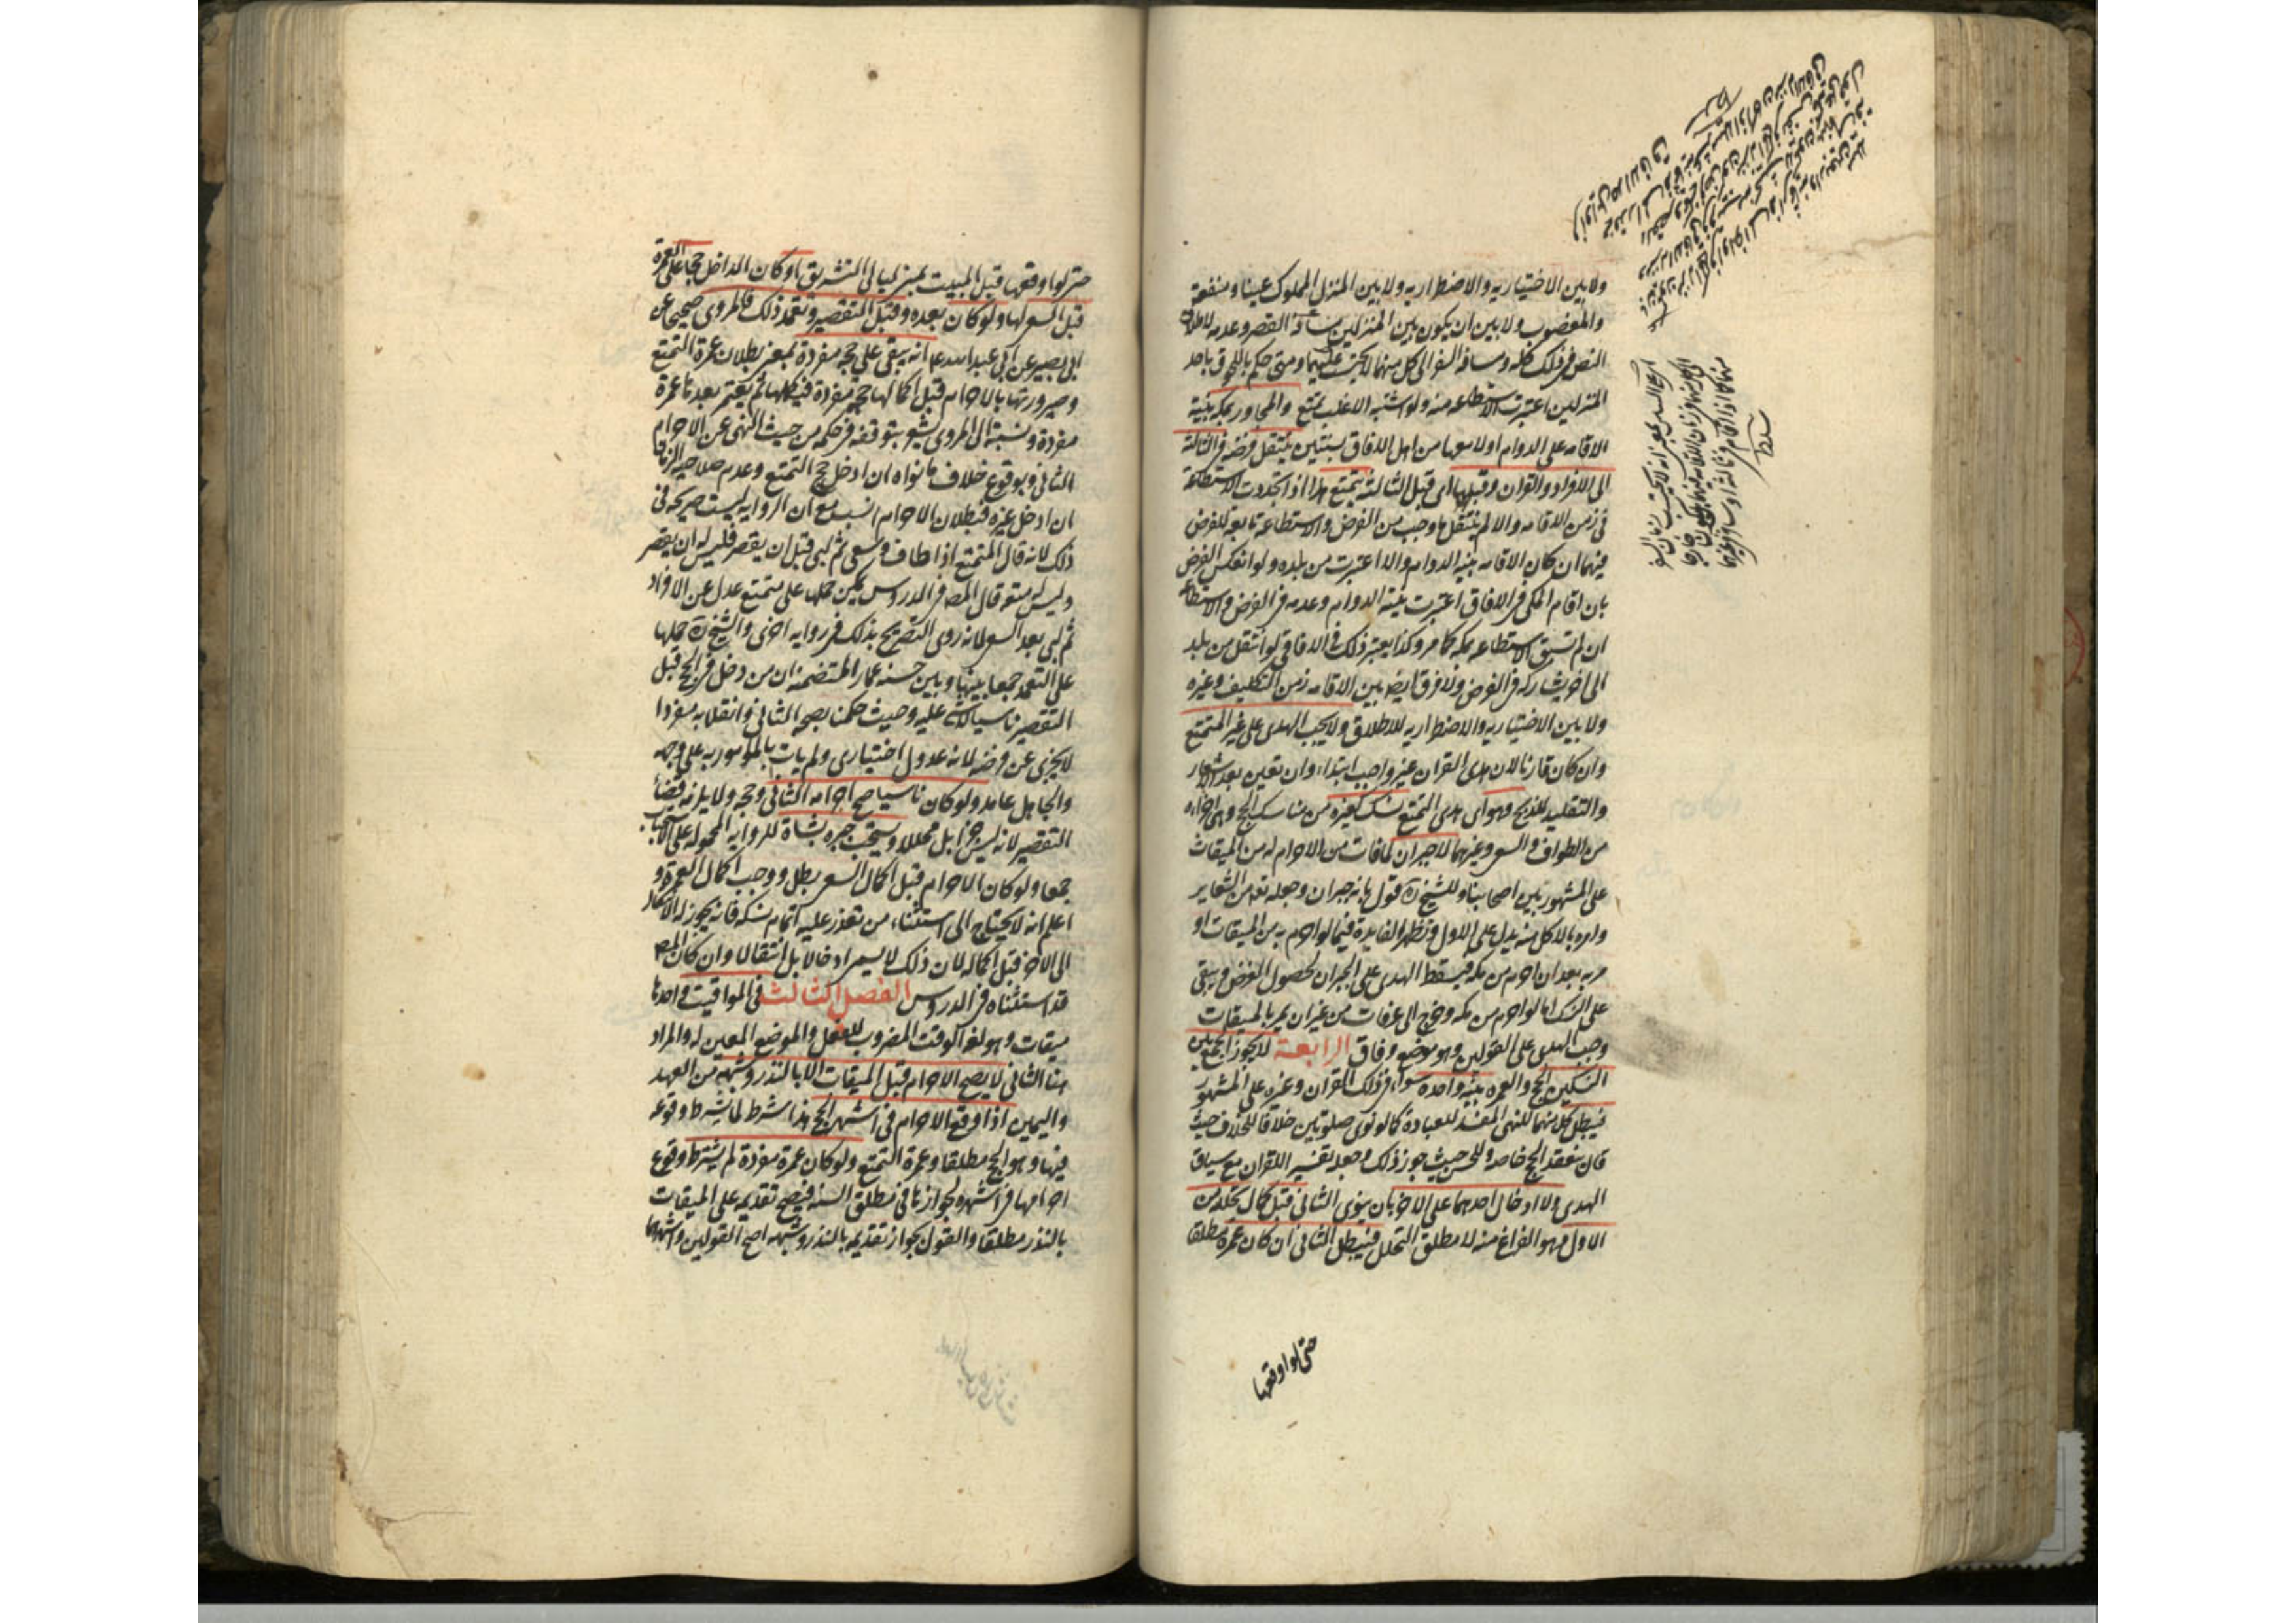 ولا بين الاختياريه والاضطراريه ولا بين المنزل المملوك عينا ومنفعة
والمغصوب ولا بين ان يكون بين المنزلين مسافة القصر وعدمه لاطلاق
النص فى ذلك كله ومسافة السفر الى كل منهما لا يحتسب عليهما ومتى حكم باللحوق باحد
المنزلين اعتبرت الاستطاعه منه ولو اشتبه الاغلب تمتع والمجاور بمكه بنية
الاقامه على الدوام اولا معها من اهل الافاق سنتين ينتقل فرضه فى الثالثة
الى الافراد والقران وقبلها اى قبل الثالثه يتمتع هذا اذا تجددت الاستطاعة
فى زمن الاقامه والا لم ينتقل ما وجب من الفرض والاستطاعة تابعة للفرض
فيهما ان كان الاقامه بنيه الدوام والا اعتبرت من بلده ولو انعكس الفرض
بان اقام المكى فى الافاق اعتبرت نية الدوام وعدمه فى الفرض والاستطاعة
ان لم تسبق الاستطاعه بمكه كما مر وكذا يعتبر ذلك فى الافاقى لو انتقل من بلد
الى اخر يشاركه فى الفرض ولا فرق ايضا بين الاقامه زمن التكليف وغيره
ولا بين الاختياريه والاضطراريه للاطلاق ولا يجب الهدى على غير المتمتع
وان كان قارنا لان هدى القران غير واجب ابتداء وان تعين بعد الاشعار
والتقليد للذبح وهو اى هدى التمتع نسك كغيره من مناسك الحج وهى اجزاءه
من الطواف والسعى وغيرهما لا جبران لما فات من الاحرام له من الميقات
على المشهور بين اصحابنا وللشيخ ره قول بانه جبران وجعله تعه من الشعاير
وامره بالاكل منه يدل على الاول وتظهر الفايدة فيما لو احرم به من الميقات او
مر به بعد ان احرم من مكه فيسقط الهدى على الجبران لحصول الغرض ويبقى
على النسك اما لو احرم من مكه وخرج الى عرفات من غير ان يمر بالميقات
وجب الهدى على القولين وهو موضع وفاق الرابعة لا يجوز الجمع بين
النسكين الحج والعمره بنية واحدة سواء فى ذلك القران وغيره على المشهور
فيبطل كل منهما للنهى المفسد للعبادة كما لو نوى صلوتين خلافا للخلاف حيث
قال ينعقد الحج خاصه وللحسن حيث جوز ذلك وجعله تفسير اللقران مع سياق
الهدى ولا ادخال احدهما على الاخر بان ينوى الثانى قبل اكمال تحلله من
الاول وهو الفراغ منه لا مطلق التحلل فيبطل الثانى ان كان عمرة مطلقا
حتى لو اوقعها
حتى لو اوقعها قبل المبيت بمنى ليالى التشريق او كان الداخل حجا على العمرة
قبل السعى لها ولو كان بعده وقبل التقصير وتعمد ذلك فالمروى صحيحا عن
ابى بصير عن ابى عبد الله ع انه يبقى على حجه مفردة بمعنى بطلان عمرة التمتع
وصيرورتها بالاحرام قبل اكمالها حجه مفردة فيكملها ثم يعتمر بعدها عمرة
مفردة ونسبته الى المروى يشعر بتوقفه فى حكمه من حيث النهى عن الاحرام
الثانى وبوقوع خلاف ما نواه ان ادخل حج التمتع وعدم صلاحيه الزمان
ان ادخل غيره فبطلان الاحرام انسب مع ان الروايه ليست صريحه فى
ذلك لانه قال المتمتع اذا طاف وسعى ثم لبى قبل ان يقصر فليس له ان يقصر
وليس له متعة قال المص فى الدروس يمكن حملها على متمتع عدل عن الافراد
ثم لبى بعد السعى لانه روى التصريح بذلك فى روايه اخرى والشيخ ره حملها
على التعمد جمعا بينها وبين حسنه عمار المتضمنه ان من دخل فى الحج قبل
التقصير ناسيا لا شئ عليه وحيث حكمنا بصحه الثانى وانقلابه مفردا
لا يجزى عن فرضه لانه عدول اختيارى ولم يات بالمامور به على وجهه
والجاهل عامد ولو كان ناسيا صح احرامه الثانى وحجه ولا يلزمه قضاء
التقصير لانه ليس جزءا بل محللا ويستحب جبره بشاة للروايه المحموله على الاستحباب
جمعا ولو كان الاحرام قبل اكمال السعى بطل ووجب اكمال العمرة و
اعلم انه لا يحتاج الى استثناء من تعذر عليه اتمام نسكه فانه يجوز له الانتقال
الى الاخر قبل اكماله لان ذلك لا يسمى ادخالا بل انتقالا وان كان المص
قد استثناه فى الدروس الفصل الثالث فى المواقيت واحدها
ميقات وهو لغة الوقت المضروب للفعل والموضع المعين له والمراد
هنا الثانى لا يصح الاحرام قبل الميقات الا بالنذر وشبهه من العهد
واليمين اذا وقع الاحرام فى اشهر الحج هذا شرط لما يشترط وقوعه
فيها وهو الحج مطلقا وعمرة التمتع ولو كان عمرة مفردة لم يشترط وقوع
احرامها فى اشهره لجوازها فى مطلق السنه فيصح تقديمه على الميقات
بالنذر مطلقا والقول بجواز تقديمه بالنذر وشبهه اصح القولين واشهرهما